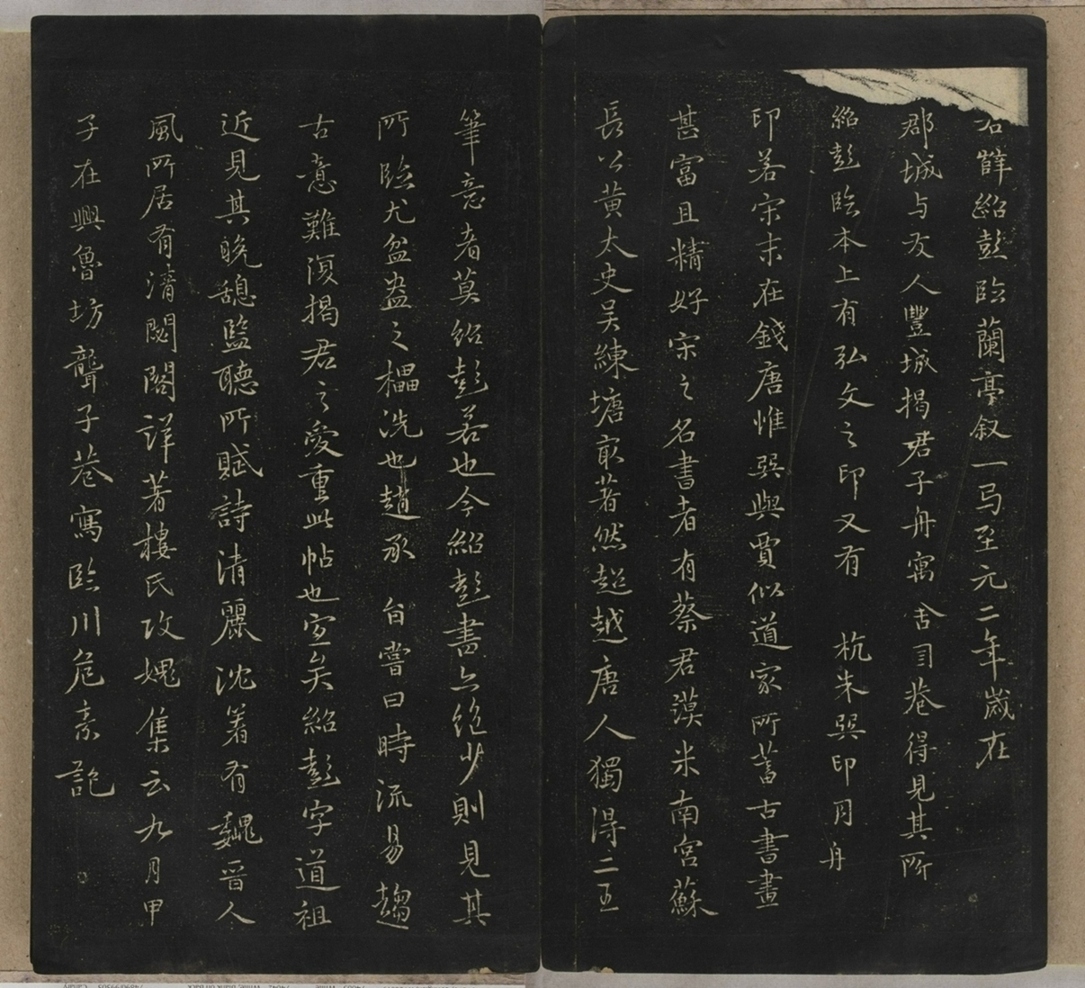 右薛紹彭臨蘭亭叙一弓至元二年歲在
郡城与友人豐城揭君子舟寓舍司巷得見其所
紹彭臨本上有弘文之印又有 杭朱巽印月舟
印若宋末在錢唐惟巽與賈似道家所蓄古書畫
甚富且精好宋之名書者有蔡君謨米南宮蘇
長公黄太史吴練塘㝡著然超越唐人獨得二王
筆意者莫紹彭若也今紹彭書亦絶少則見其
所臨尤盆盎之櫑洗也趙承旨嘗曰時流易趨
古意難復揭君之愛重此帖也宜矣紹彭字道祖
近見其晚憩監聽所賦詩清麗沈着有魏晉人
風所居有清閟閣詳著樓氏攻媿集云九月甲
子在興魯坊聾子巷寓臨川危素記